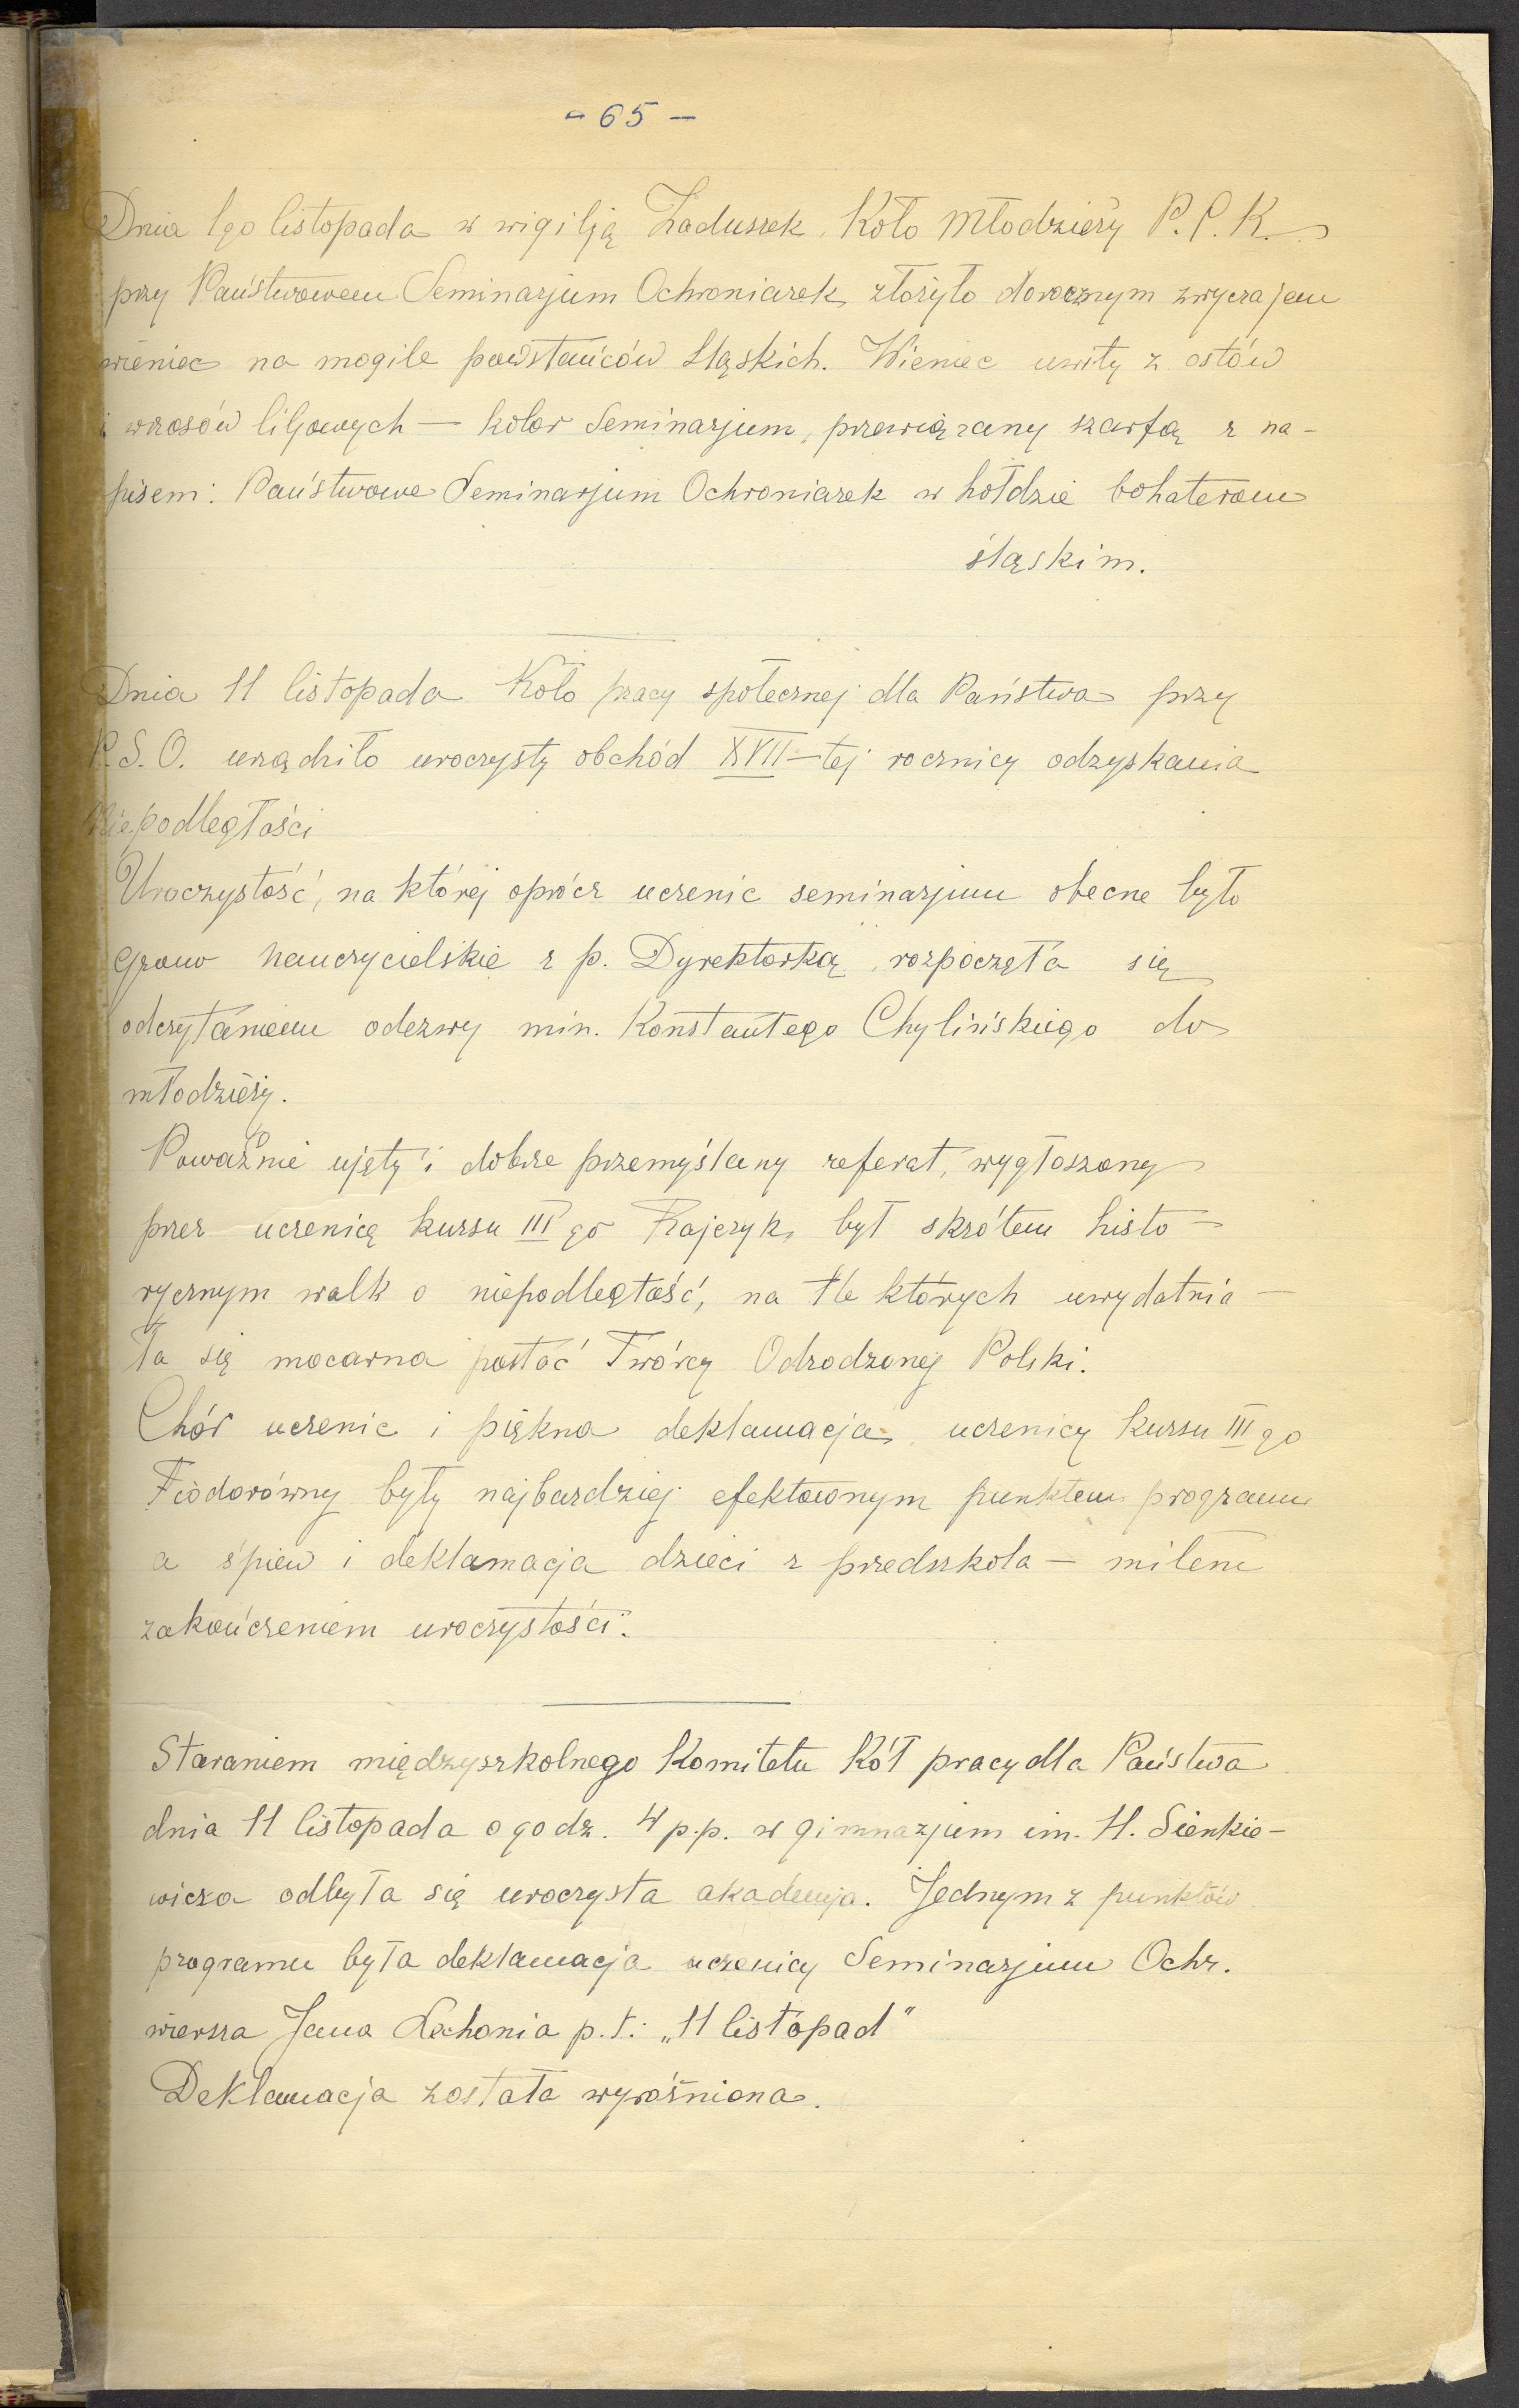 - 65 -
Dnia 1go listopada w wigilją Zaduszek Koło Młodzieży P.C.K.
przy Państwowem Seminarjum Ochroniarek złożyło dorocznym zwyczajem
wieniec na mogile powstańców śląskich. Wieniec uwity z ostów
i wrzosów liljowych — kolor Seminarjum, przewiązany szarfą z na-
pisem: Państwowe Seminarjum Ochroniarek w hołdzie bohaterom
śląskim.
Dnia 11 listopada Koło pracy społecznej dla Państwa przy
P.S.O. urządziło uroczysty obchód XVII-tej rocznicy odzyskania
Niepodległości
Uroczystość, na której oprócz uczenic seminarjum obecne było
grono nauczycielskie z p. Dyrektorką, rozpoczęła się
odczytaniem odezwy min. Konstantego Chylińskiego do
młodzieży.
Poważnie ujęty i dobrze przemyślany referat, wygłoszony
przez uczenicę kursu III go Frajczyk, był skrótem histo-
rycznym walk o niepodległość, na tle których uwydatnia-
ła się mocarna postać Twórcy Odrodzonej Polski.
Chór uczenic i piękna deklamacja uczenicy kursu III go
Fiodorówny były najbardziej efektownym punktem programu
a śpiew i deklamacja dzieci z przedszkola — miłem
zakończeniem uroczystości.
Staraniem międzyszkolnego Komitetu Kół pracy dla Państwa
dnia 11 listopada o godz. 4 p.p. w gimnazjum im. H. Sienkie-
wicza odbyła się uroczysta akademja. Jednym z punktów
programu była deklamacja uczenicy Seminarjum Ochr.
wiersza Jana Lechonia p.t.: „11 listopad"
Deklamacja została wyróżniona.